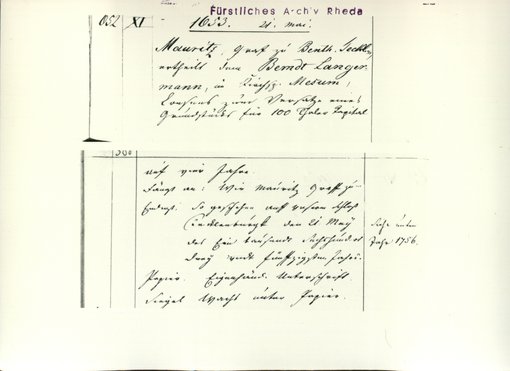 Fürstliches Archiv Rheda
052 XI 1653. 21. Mai.
Mauritz, Graf zu Benth. Tecklbg,
ertheilt dem Berndt Langer
mann, in Kirchsp. Mesum,
Consens zum Versatze eines
Grundstücks für 100 Thaler Capital
auf vier Jahre.
Fängt an: Wir Mauritz Graff zu
Endigt: So geschehen auff unserm Schloß
Tecklenburgk den 21 Meij
des Ein tausendt Sechshundert
drey undt fünffzigsten Jahrs.
Papier. Eigenhänd. Unterschrift.
Siegel Wachs unter Papier.
Siehe unten
Jahr 1756.